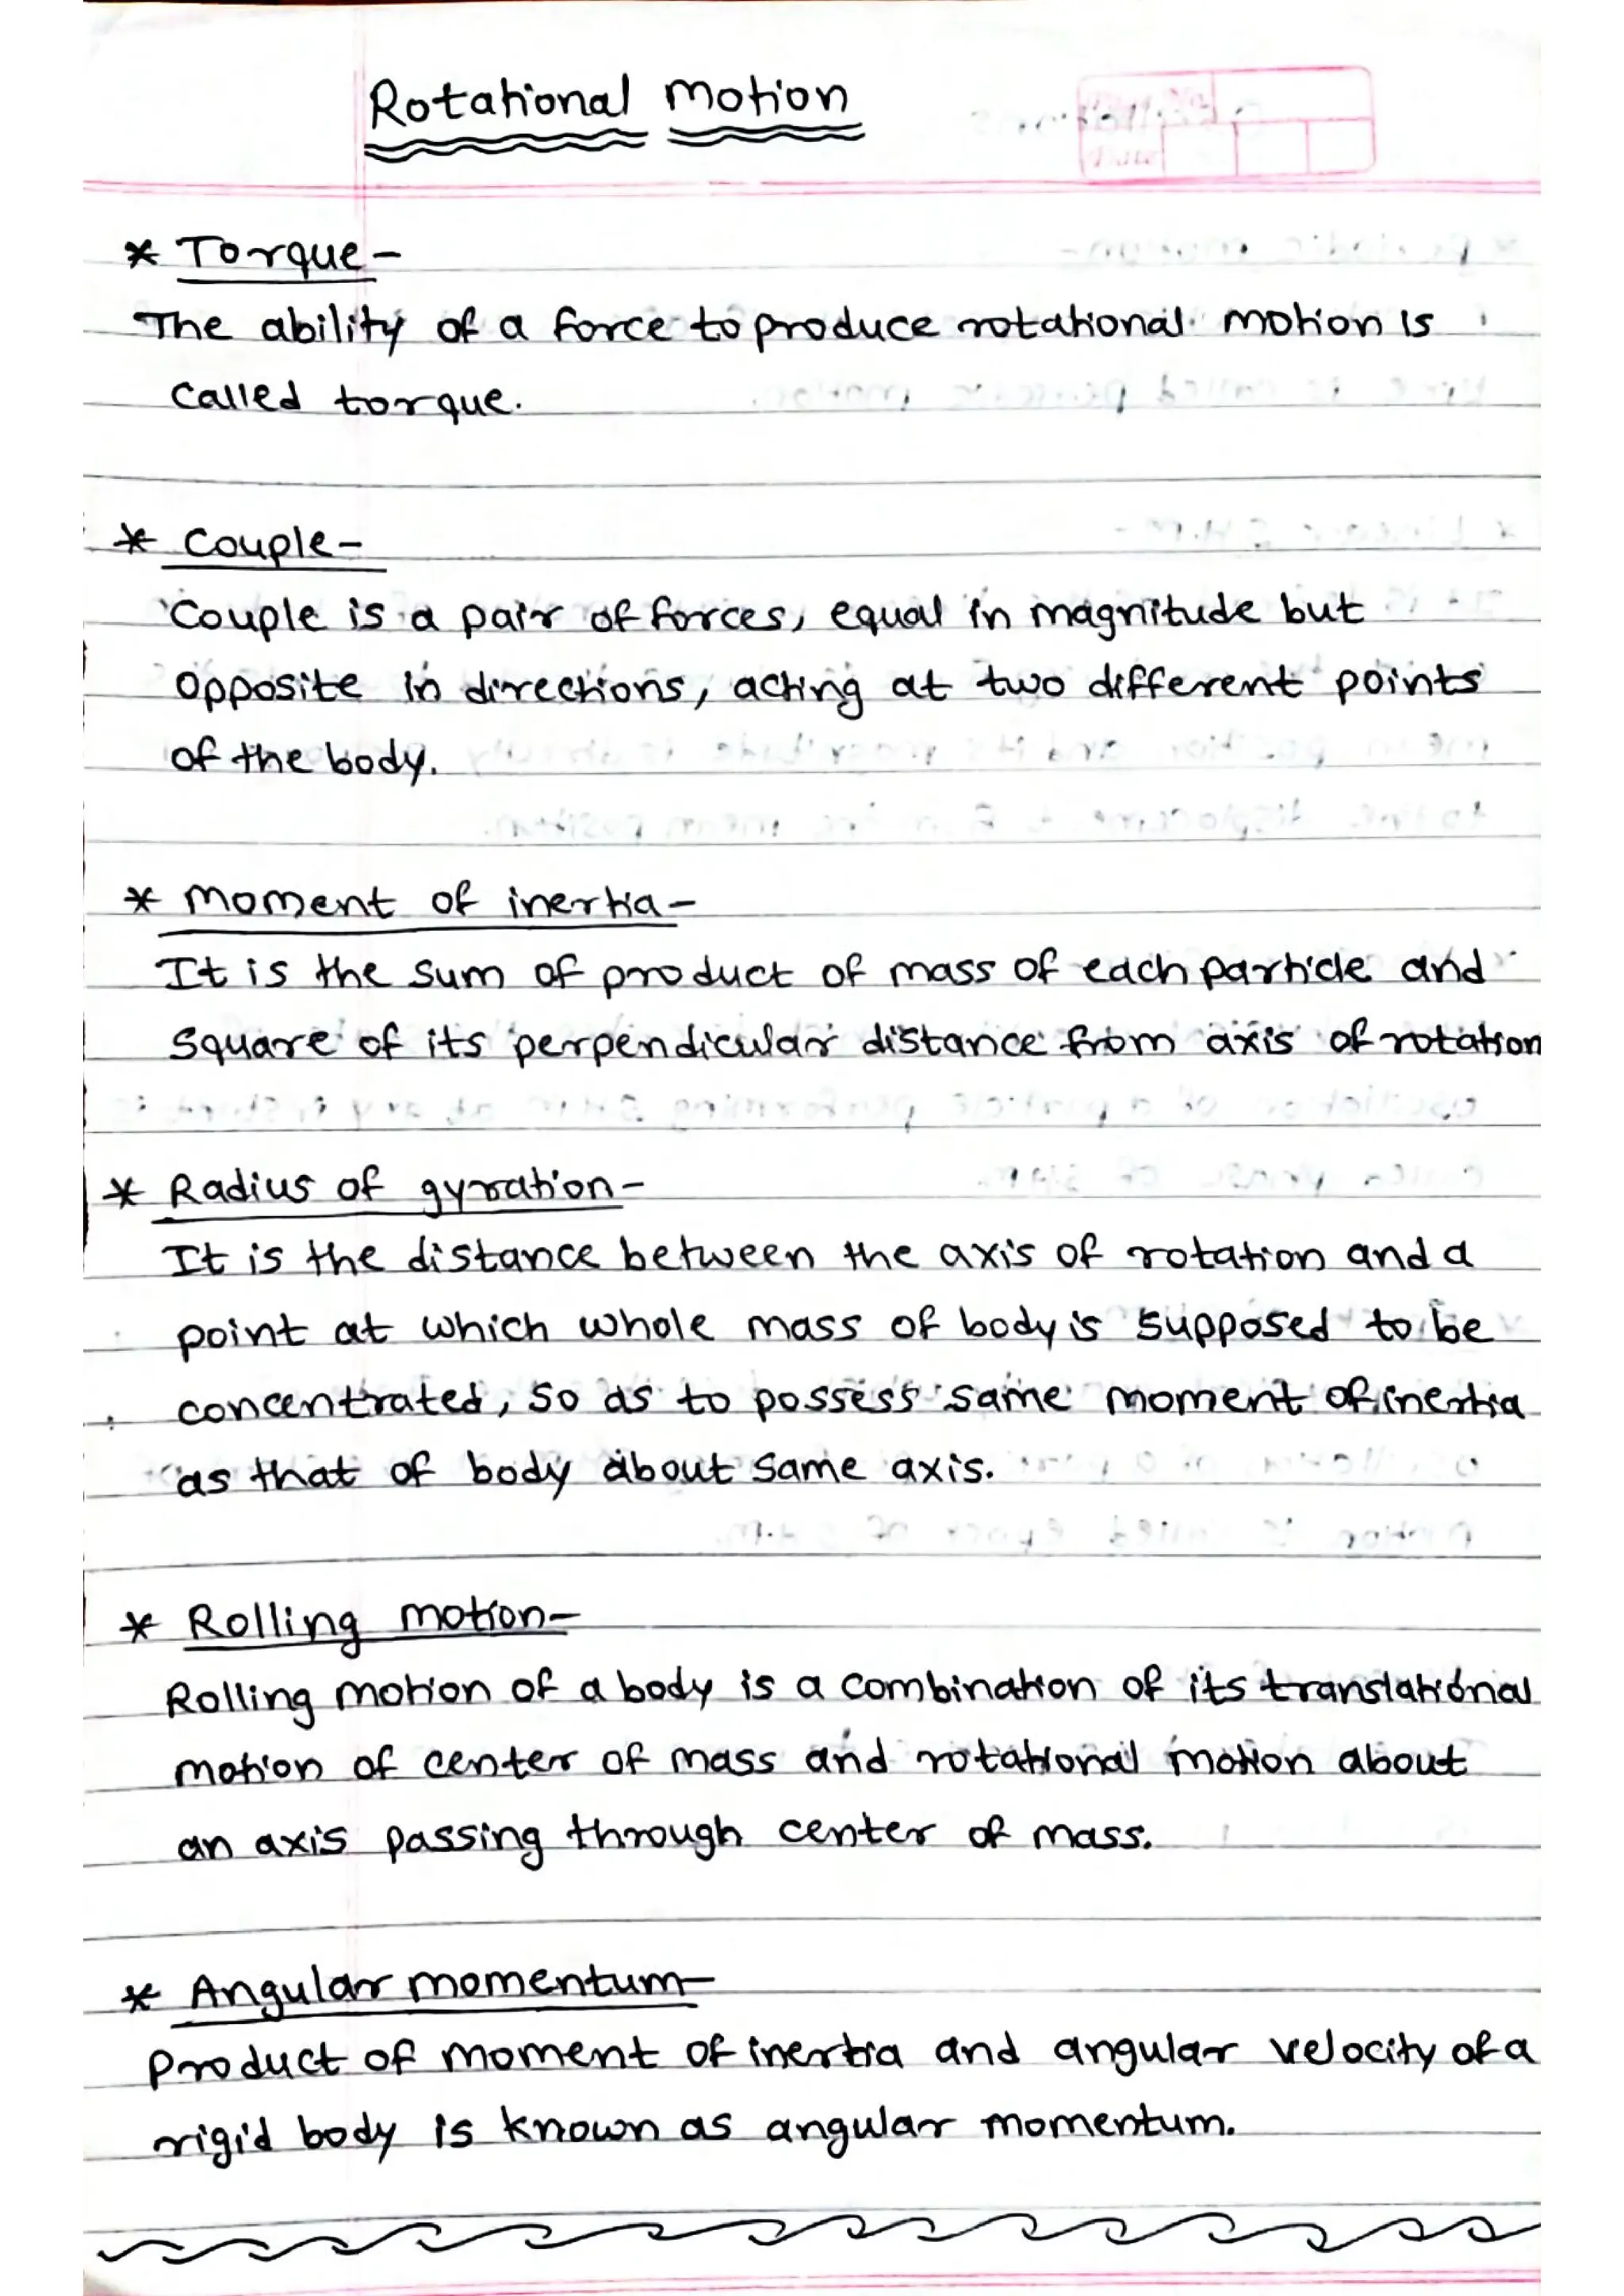 Rotational motion
* Torque-
The ability of a force to produce rotational motion is
called torque.
* Couple-
Couple is a pair of forces, equal in magnitude but
opposite in directions, acting at two different points
of the body.
* moment of inertia-
It is the sum of product of mass of each particle and
square of its perpendicular distance from axis of rotation
* Radius of gyration-
It is the distance between the axis of rotation and a
point at which whole mass of body is supposed to be
concentrated, so as to possess same moment of inertia
as that of body about same axis.
* Rolling motion-
Rolling motion of a body is a combination of its translational
motion of center of mass and rotational motion about
an axis passing through center of mass.
* Angular momentum-
Product of moment of inertia and angular velocity of a
rigid body is known as angular momentum.